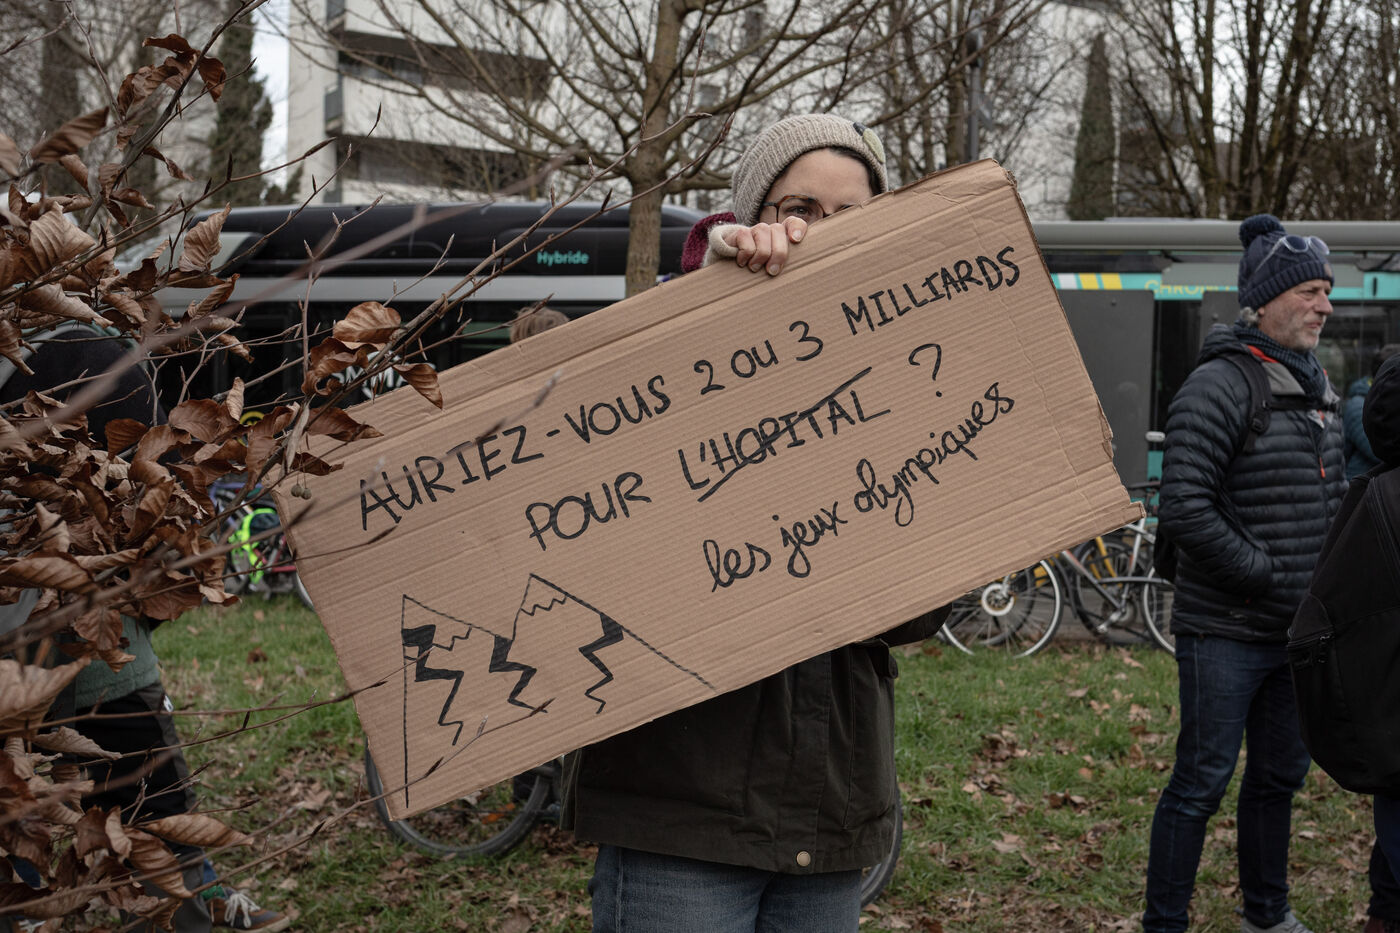 Hybride
CHRONO
AURIEZ-VOUS 2 OU 3 MILLIARDS
POUR L'HOPITAL ?
les jeux olympiques